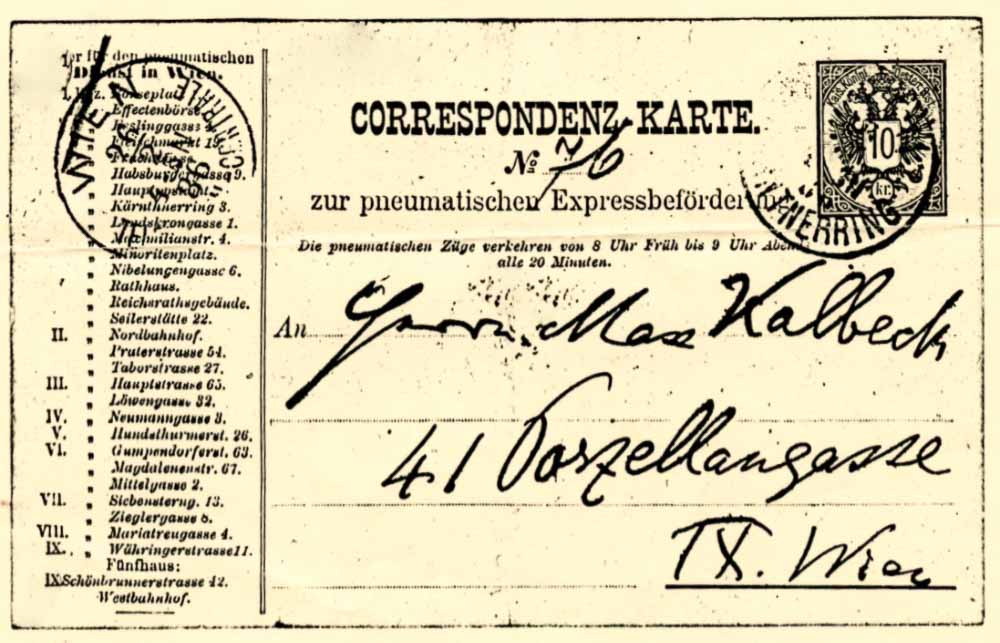 für den pneumatischen
Dienst in Wien.
I. Bez. Börseplatz
" Effectenbörse
" Esslinggasse
" Fleischmarkt 19.
" Habsburgergasse 9.
" Hauptpostamt.
" Kärnthnerring 3.
" Landskrongasse 1.
" Maximilianstr. 4.
" Minoritenplatz.
" Nibelungengasse 6.
" Rathhaus.
" Reichsrathsgebäude.
" Seilerstätte 22.
II. " Nordbahnhof.
" Praterstrasse 54.
" Taborstrasse 27.
III. " Hauptstrasse 65.
" Löwengasse 32.
IV. " Neumanngasse 3.
V. " Hundsthurmerst. 26.
VI. " Gumpendorferst. 63.
" Magdalenenstr. 67.
" Mittelgasse 2.
VII. " Siebensterng. 13.
" Zieglergasse 8.
VIII. " Mariatreugasse 4.
IX. " Währingerstrasse 11.
Fünfhaus:
Schönbrunnerstrasse 42.
Westbahnhof.
WIEN
CENTRALE
CORRESPONDENZ-KARTE.
No. 76
zur pneumatischen Expressbeförderung
Die pneumatischen Züge verkehren von 8 Uhr Früh bis 9 Uhr Abends
alle 20 Minuten.
10
kr.
THNERRING
An Herrn Max Kalbeck
41 Porzellangasse
IX. Wien